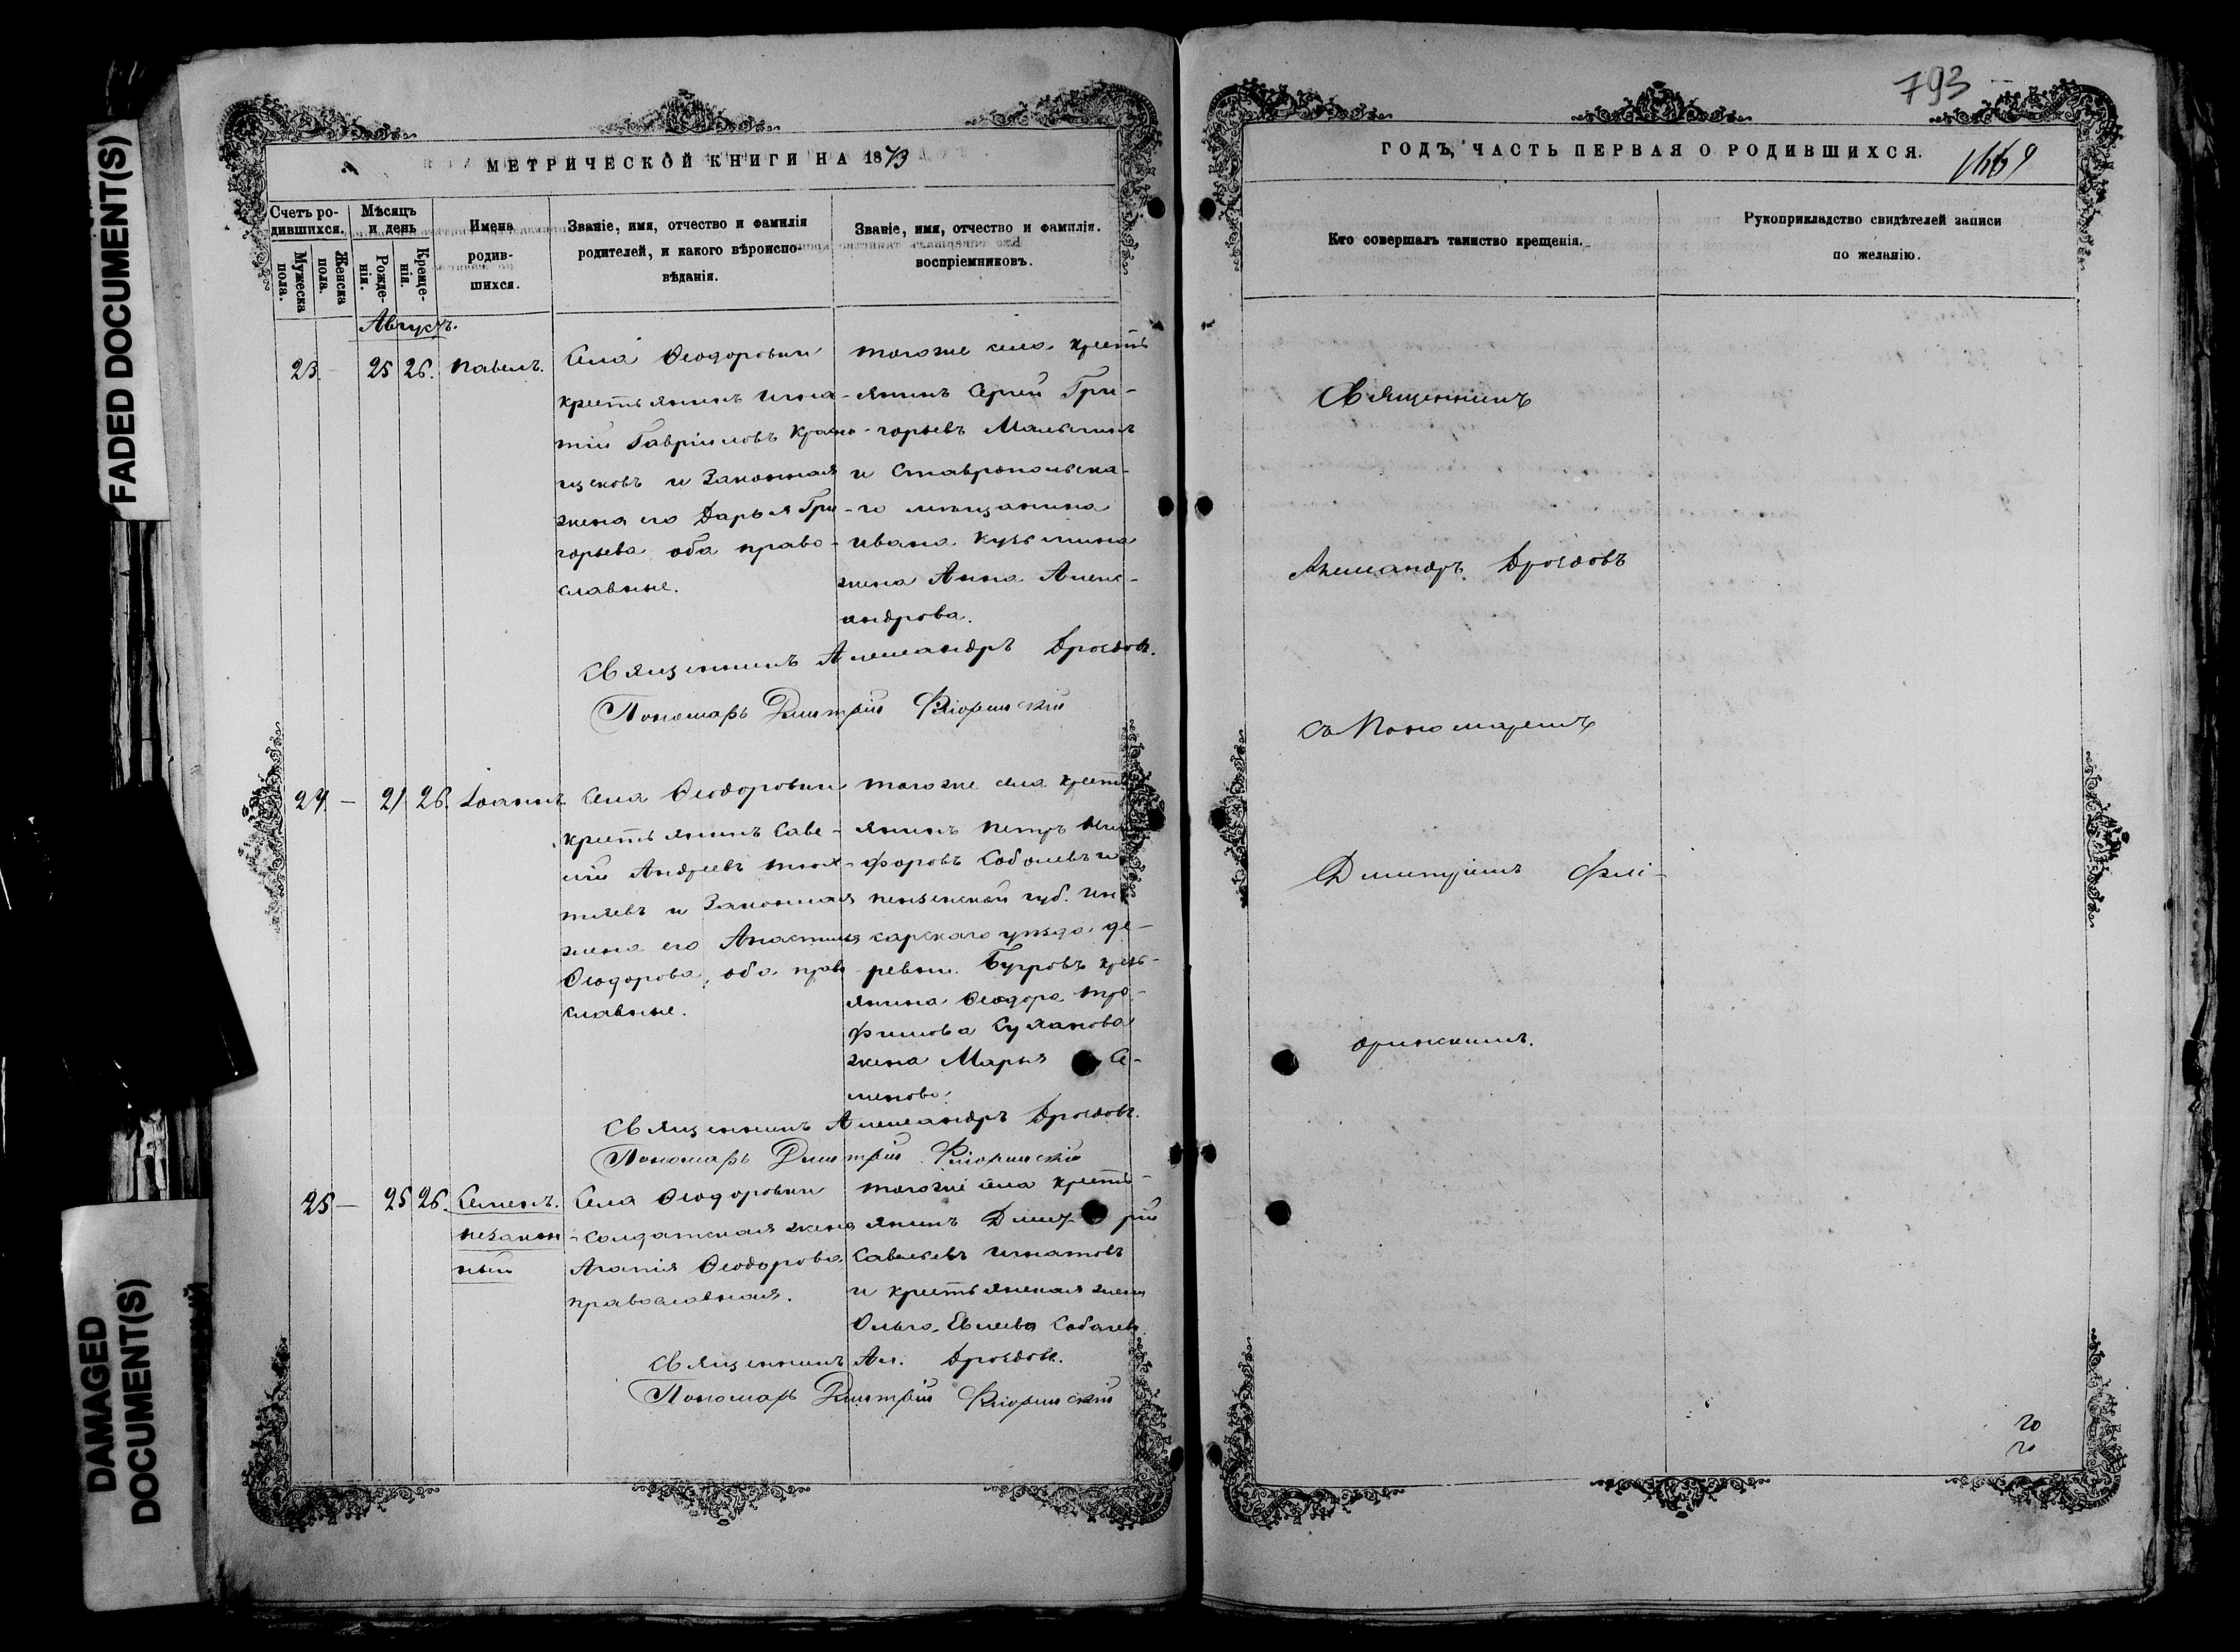 FADED DOCUMENT(S)
DAMAGED
DOCUMENT(S)
МЕТРИЧЕСКОЙ КНИГИ НА 1873
Счетъ ро-
дившихся.
Мужеска
пола.
Женска
пола.
Мѣсяцъ
и день
Рожде-
нія.
Креще-
нія.
Имена
родив-
шихся.
Званіе, имя, отчество и фамилія
родителей, и какого вѣроиспо-
вѣданія.
Званіе, имя, отчество и фамилія.
воспріемниковъ.
Августъ.
23. 25 26. Павелъ.
Села Ѳеодоровки
крестьянинъ Игна-
тій Гавріиловъ
и законная
жена его Дарья Гри-
горьева оба право-
славные.
тогоже села кресть
янинъ Сергій Гри-
горьевъ
и Ставропольска-
го мѣщанина
Ивана Кузьмина
жена Анна Алекс-
андрова.
Священникъ Александръ Дроздовъ.
Пономарь Димитрій Фліоринскій
24 — 21 26. Іоаннъ
Села Ѳеодоровки
крестьянинъ Саве-
лій Андреевъ
и законная
жена его Анастасія
Ѳеодорова, оба право
славные.
тогоже села кресть
янинъ Петръ
форовъ Соболевъ и
пензенской губ. Ин
сарскаго уѣзда де-
ревни кресть-
янина Ѳеодора Тро-
фимова
жена Марья Се-
менова.
Священникъ Александръ Дроздовъ.
Пономарь Димитрій Фліоринскій
25 — 25 26. Семенъ.
незакон
ный
Села Ѳеодоровки
солдатская жена
Агапія Ѳеодорова
православная.
тогоже села кресть-
янинъ Димитрій
Савельевъ Игнатовъ
и крестьянская жена
Ольга
Священникъ Ал. Дроздовъ.
Пономарь Димитрій Фліоринскій
793
ГОДЪ, ЧАСТЬ ПЕРВАЯ О РОДИВШИХСЯ.
Кто совершалъ таинство крещенія.
Рукоприкладство свидѣтелей записи
по желанію.
Священникъ
Александръ Дроздовъ
съ Пономаремъ
Димитріемъ Флі-
оринскимъ.